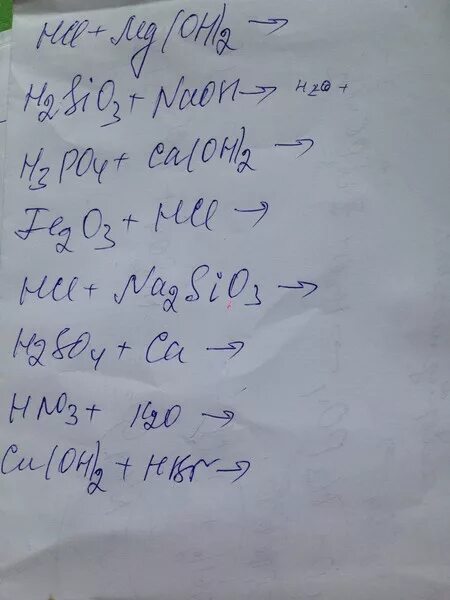 HCl + Mg(OH)2 →
H2SiO3 + NaOH → H2O +
H3PO4 + Ca(OH)2 →
Fe2O3 + HCl →
HCl + Na2SiO3 →
H2SO4 + Ca →
HNO3 + K2O →
Cu(OH)2 + HBr →